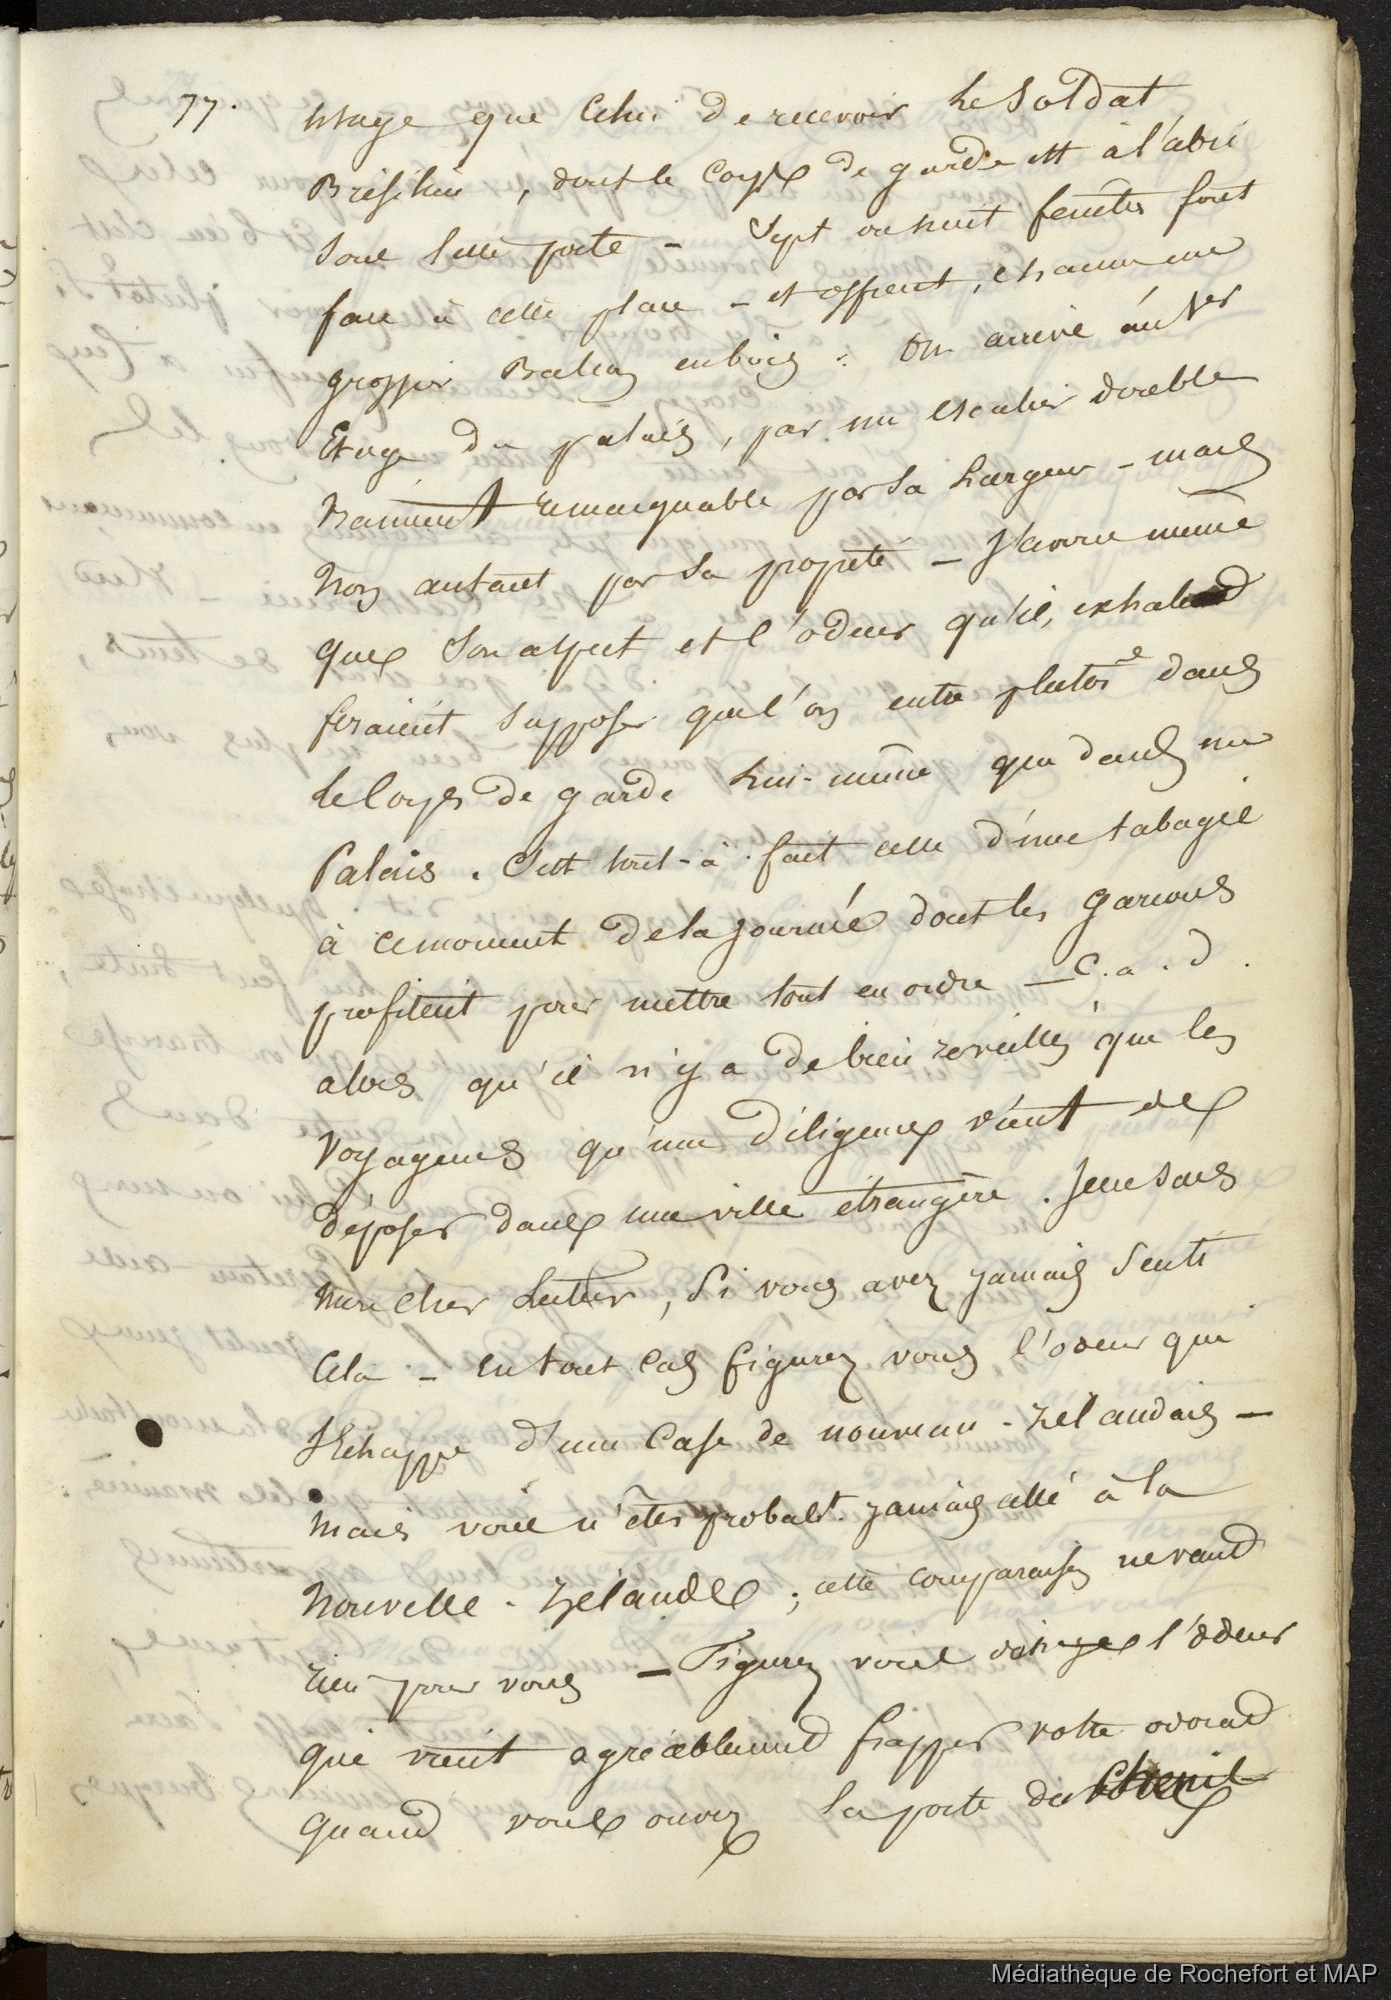 77.
Usage que celui de recevoir le soldat
Brésilien, dont le corps de garde est à l'abri
sous cette porte – Sept ou huit fenêtres font
face à cette place – et offrent, chacune un
grossier Balcon en bois : On arrive au 1er
Etage du palais, par un escalier double
vraiment remarquable par sa largeur – mais
non autant par sa propreté – J'avoue même
que son aspect et l'odeur qu'il exhale
feraient supposer que l'on entre plutôt dans
le Corps de garde lui-même que dans un
Palais. C'est tout-à-fait celle d'une tabagie
à ce moment de la journée dont les garçons
profitent pour mettre tout en ordre – C. a. d.
alors qu'il n'y a de bien réveillés que les
voyageurs qu'une diligence vient de
déposer dans une ville étrangère. Je ne sais
mon cher lecteur, si vous avez jamais senti
cela – en tout cas figurez vous l'odeur qui
s'échappe d'une case de nouveau-zélandais –
mais vous n'êtes probablt. jamais allé à la
Nouvelle-Zélande ; cette comparaison ne vaut
rien pour vous – Figurez vous l'odeur
qui vient agréablement frapper votre odorat
quand vous ouvrez la porte du Chenil
Médiathèque de Rochefort et MAP